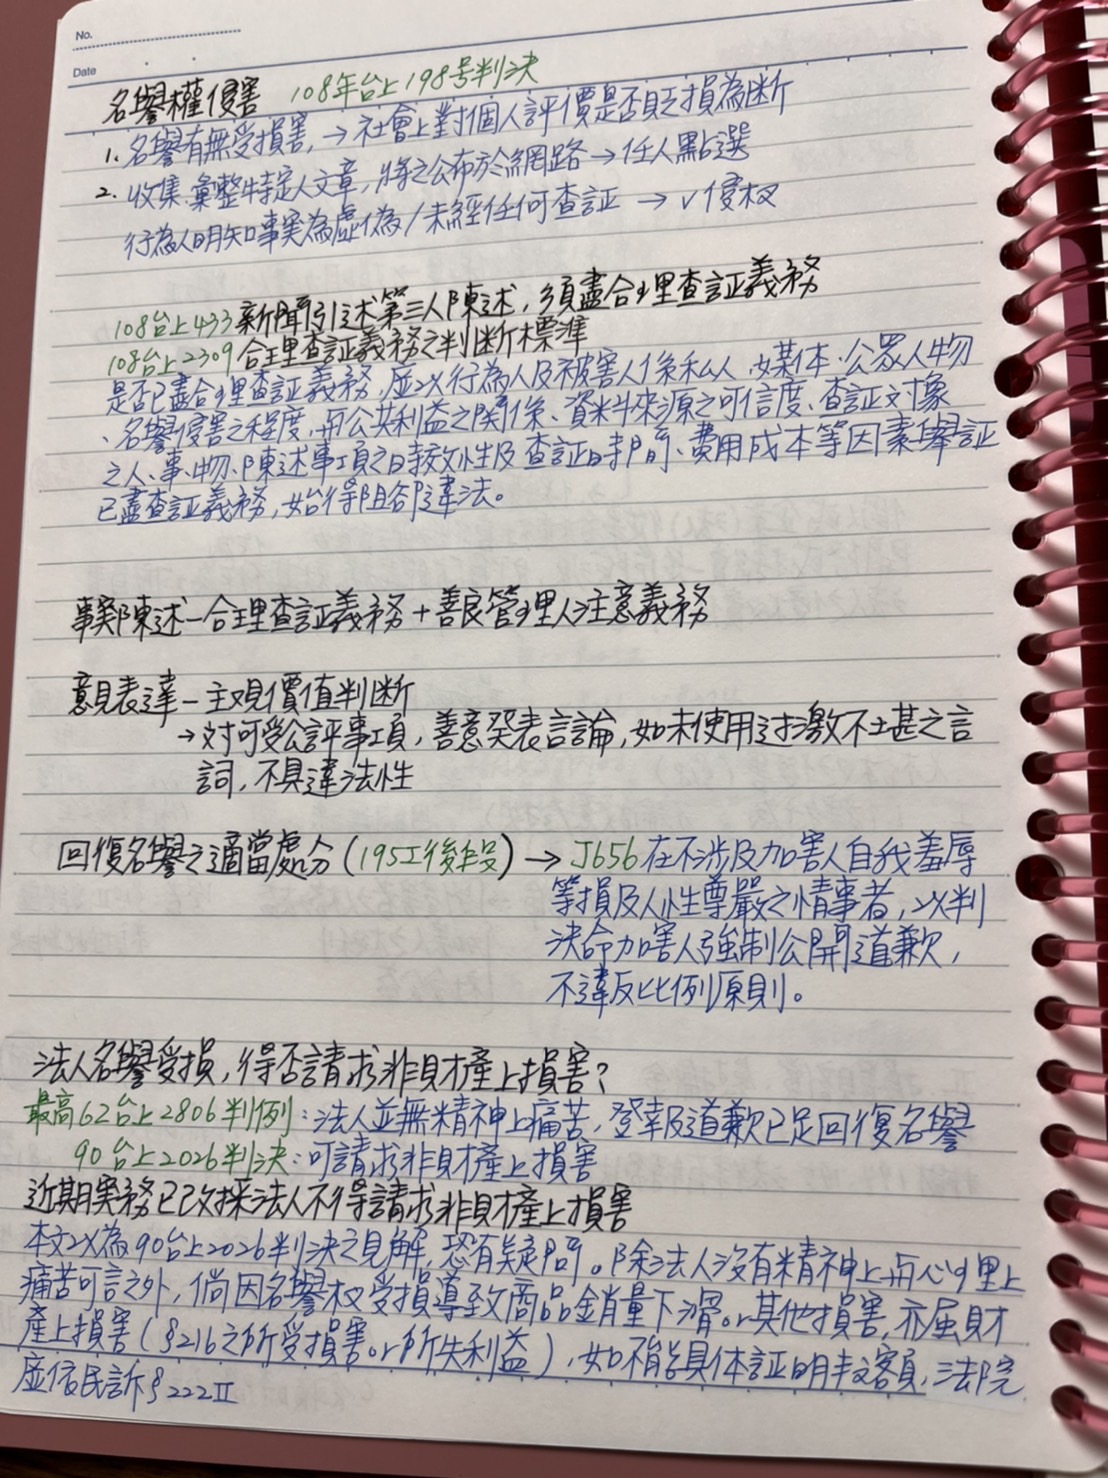 No.
Date
名譽權侵害 108年台上198号判決
1. 名譽有無受損害, → 社會上對個人評價是否貶損為斷
2. 收集、彙整特定人文章, 將之公布於網路 → 任人點選
行為人明知事实為虛偽/未經任何查証 → ✓侵权
108台上433 新聞引述第三人陳述, 須盡合理查証義務
108台上2309 合理查証義務之判斷標準
是否已盡合理查証義務, 应以行為人及被害人係私人、媒体、公眾人物
、名譽侵害之程度、与公共利益之関係、資料來源之可信度、查証対象
之人、事、物、陳述事項之時效性及查証時間、費用成本等因素舉証
已盡查証義務, 始得阻卻違法。
事实陳述－合理查証義務＋善良管理人注意義務
意見表達－主观價值判断
→対可受公評事項, 善意発表言論, 如未使用过激不堪之言
詞, 不具違法性
回復名譽之適當處分 (195I後段) → J656 在不涉及加害人自我羞辱
等損及人性尊嚴之情事者, 以判
決命加害人強制公開道歉,
不違反比例原則。
法人名譽受損, 得否請求非財產上損害?
最高62台上2806判例: 法人並無精神上痛苦, 登報道歉已足回復名譽
90台上2026判決: 可請求非財產上損害
近期实務已改採法人不得請求非財產上損害
本文以為90台上2026判決之見解, 恐有疑問。除法人沒有精神上与心理上
痛苦可言之外, 倘因名譽权受損導致商品銷量下滑or其他損害, 亦屬財
產上損害 (§216之所受損害or所失利益), 如不能具体証明其客員, 法院
应依民訴§222II